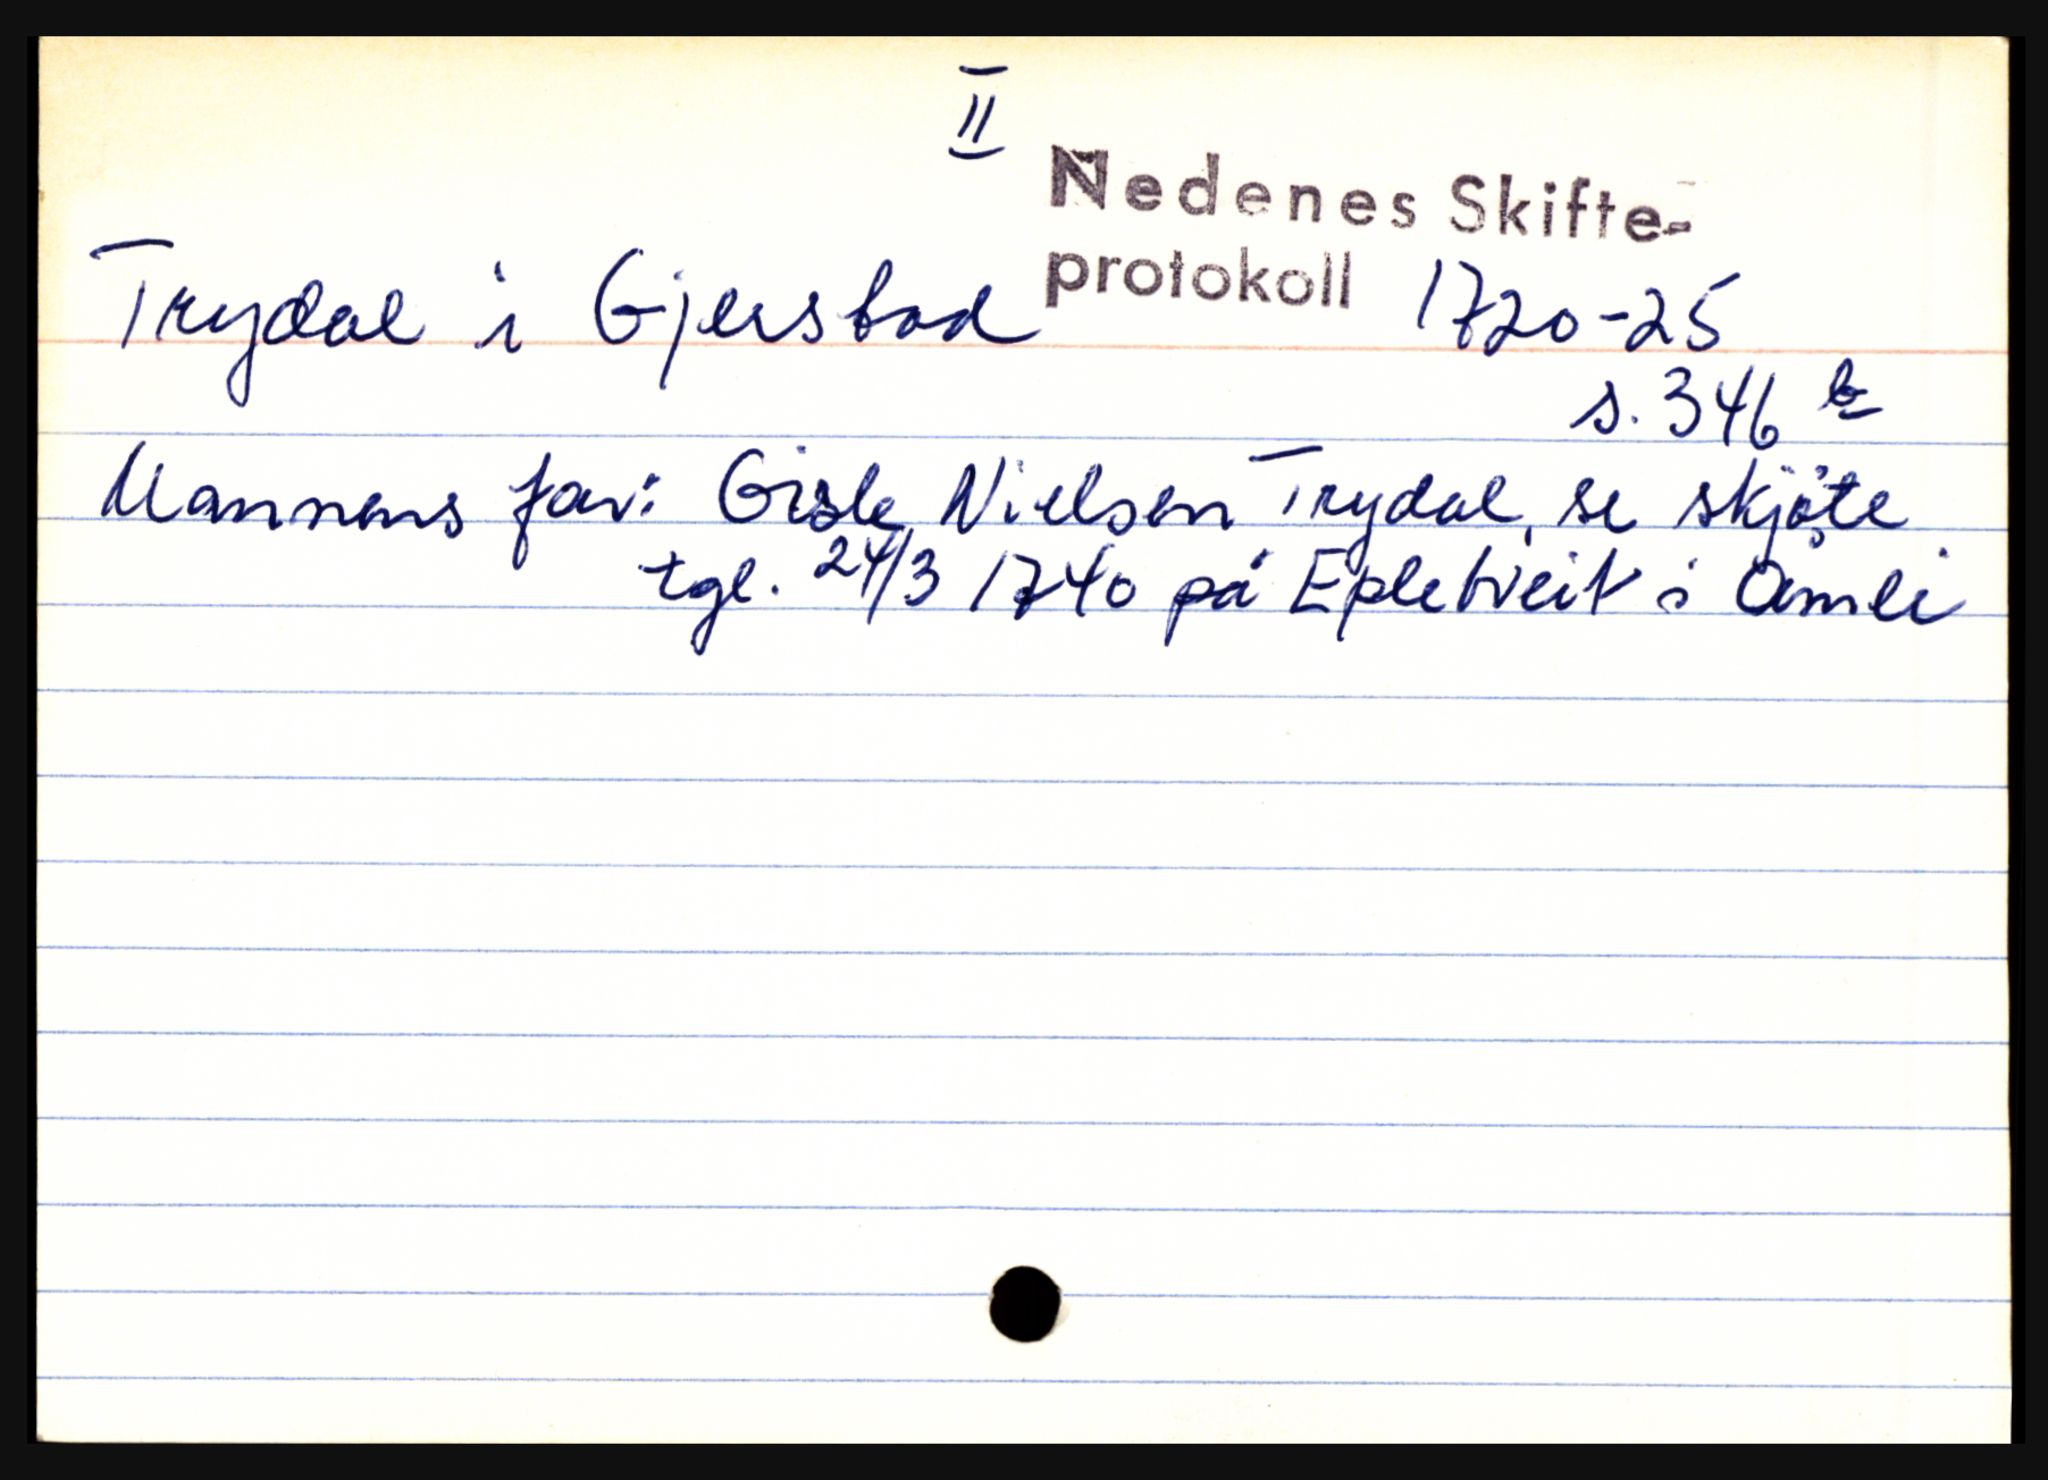 II
Nedenes Skifte-
protokoll 1720-25
Trydal i Gjerstad
s. 346 b
Mannens far: Gisle Nielsen Trydal, se skjöte
tgl. 24/3 1740 på Epletveit i Åmli